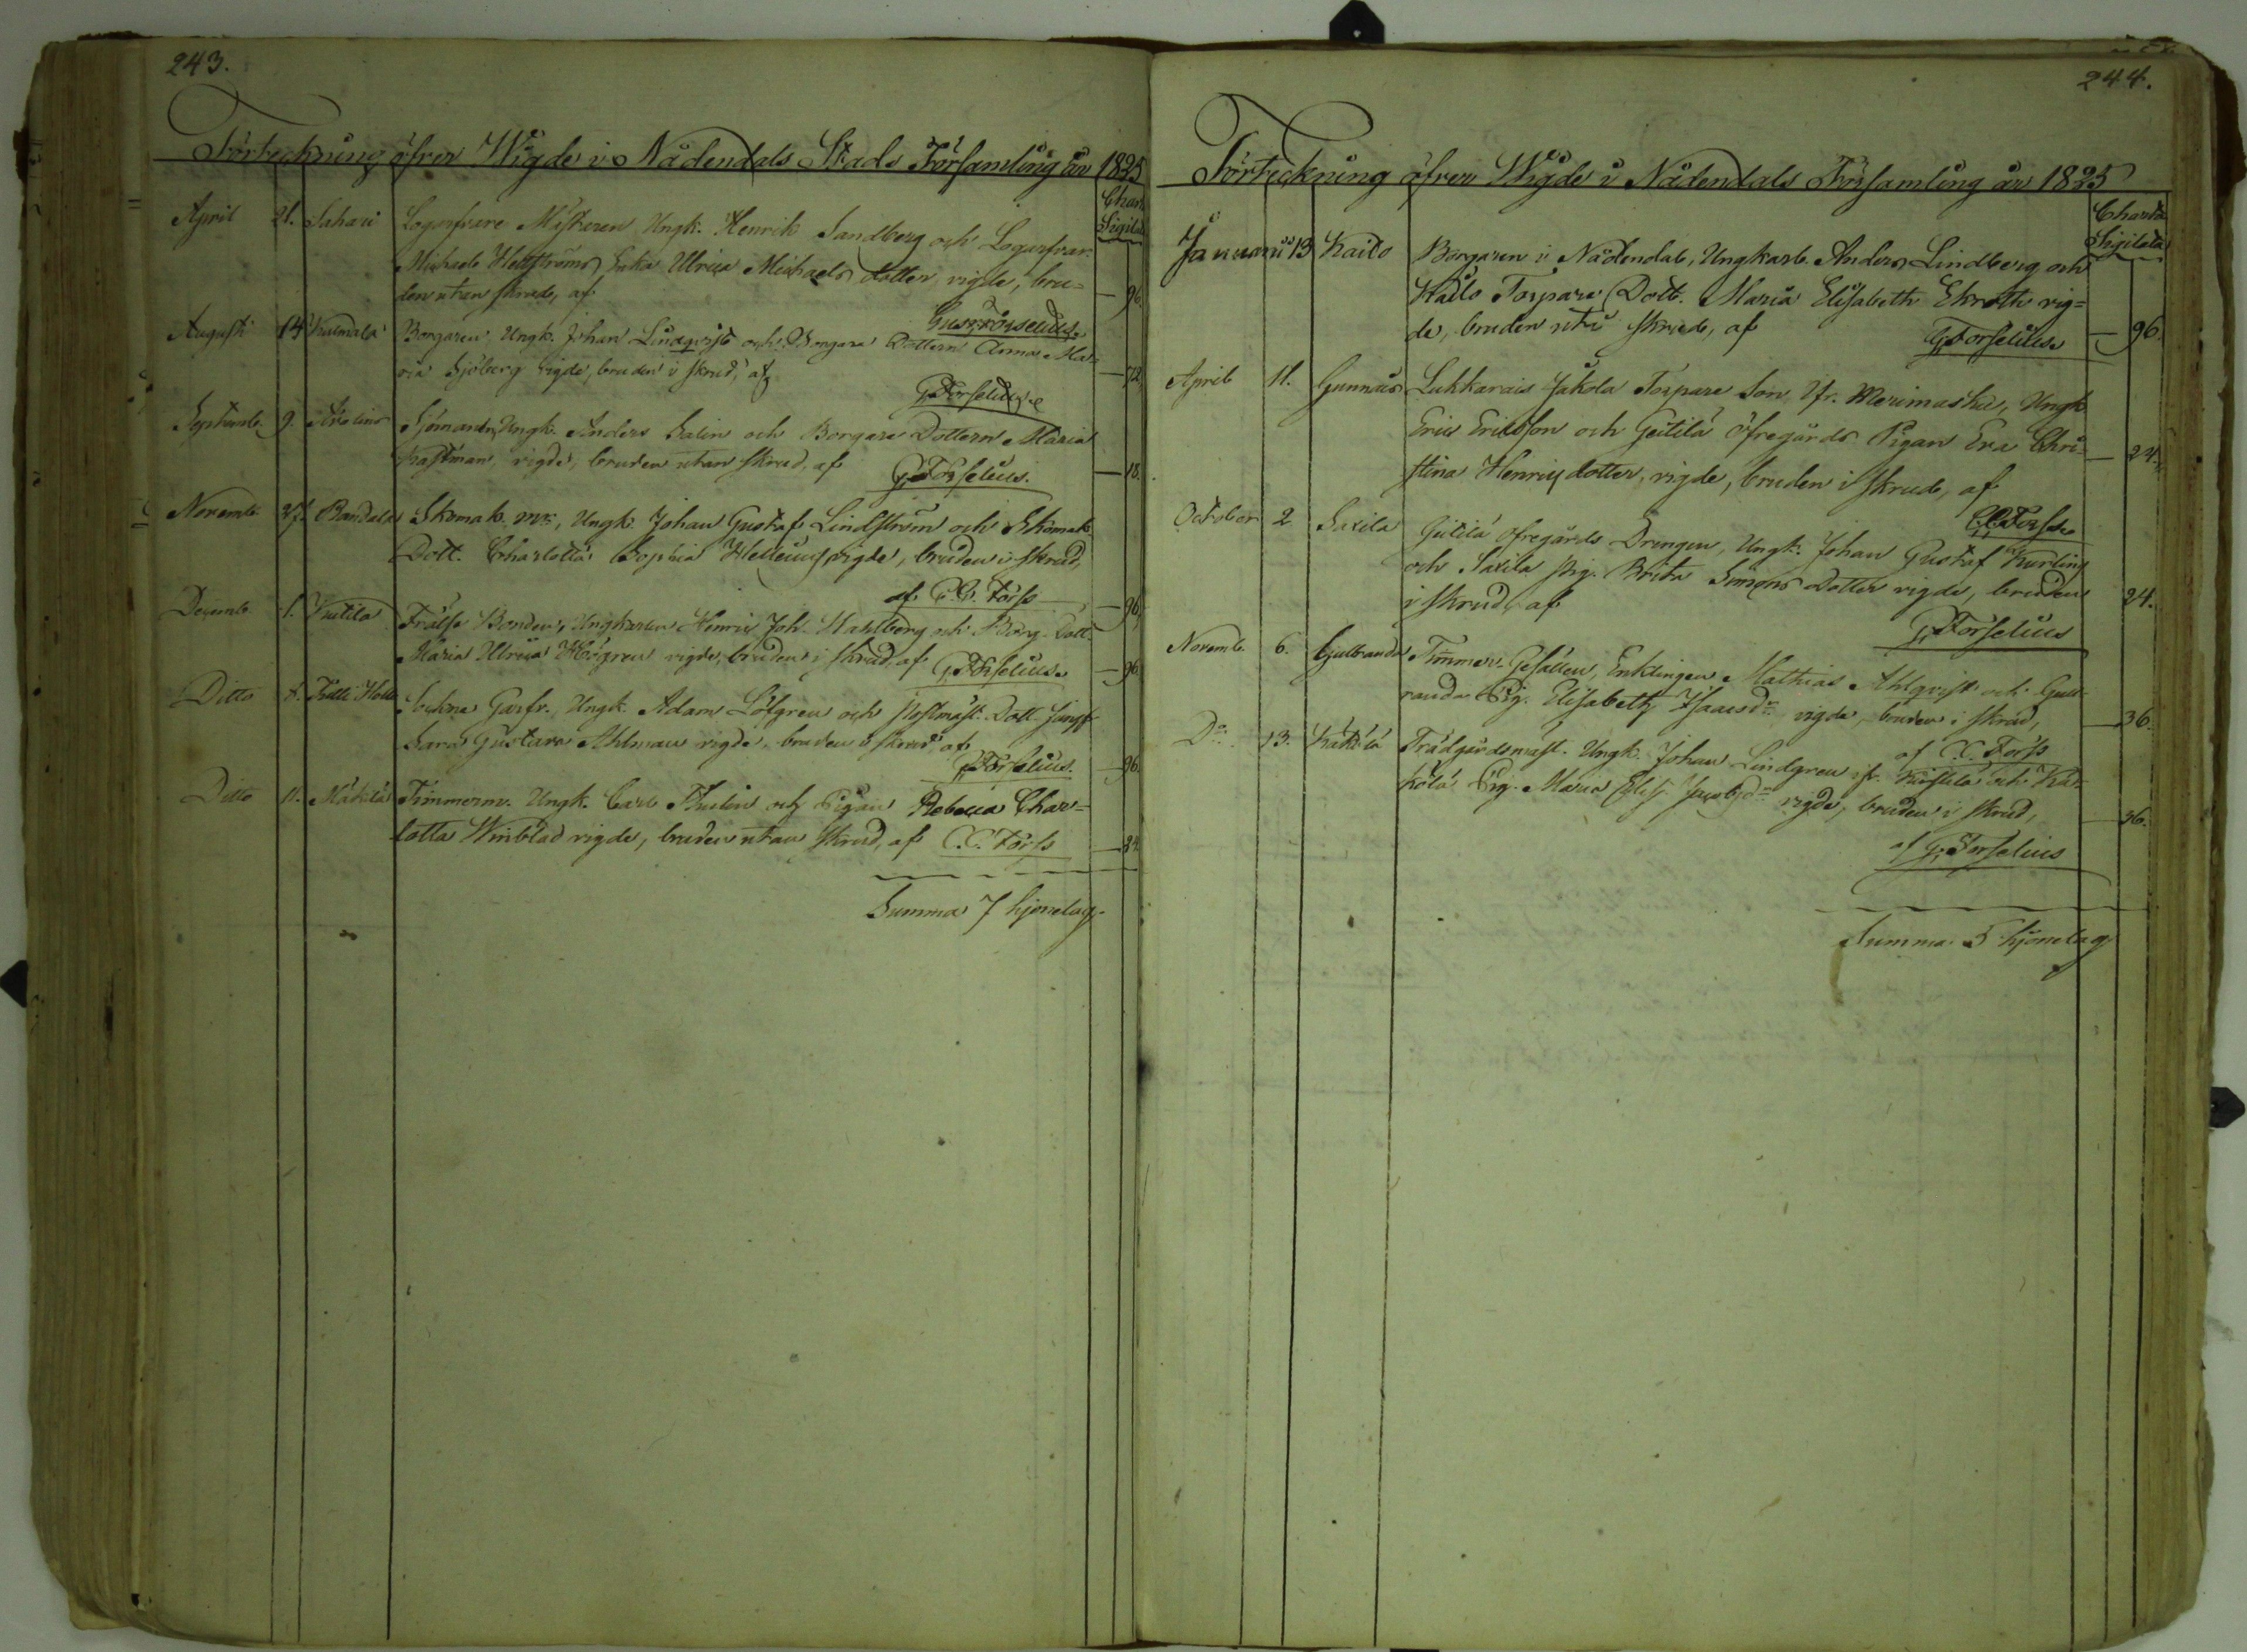 243.
Förteckning öfver Wigde i Nådendals Stads Församling år 1825
Charta
Sigilata
April 21. Sahari Logarfvare Mästaren Ungk. Henrik Sandberg och Logarfvar.
Michael Hellströms Enka Ulrica Michaels dotter vigde, bru=
den utan skrud, af — 96.
Gust. Forselius.
Augusti 14 Borgaren, Ungk. Johan Lindqvist och Borgare Dottern Anna Ma=
ria Sjöberg vigde, bruden i skrud, af — 72.
G. Forselius
Septemb. 9. Sjöman Ungk. Anders Salin och Borgare Dottern Maria
Kastman, vigde, bruden utan skrud, af G. Forselius. — 18.
Novemb. 27. Skomak. Ungk. Johan Gustaf Lindström och Skomak.
Dott. Charlotta Sophia vigde, bruden i skrud,
af C.C. Forss — 96.
Decemb. 1. Frälse Bonden, Ungkarlen Henric Joh. Wahlberg och Borg. Dott.
Maria Ulrica Högren vigde, bruden i skrud, af G. Forselius. — 96.
Ditto Garfv. Ungk. Adam Löfgren och Postmäst. Dott. Jungf.
Sara Gustava Ahlman vigde, bruden i skrud af
G. Forselius. — 96.
Ditto 11. Timmerm. Ungk. Carl Thulin och Pigan Rebecca Char=
lotta Winblad vigde, bruden utan skrud, af C.C. Forss — 24.
Summa 7 hjonelag.
244.
Förteckning öfver Wigde i Nådendals Församling år 1825
Charta
Sigilata
Januarii 13 Kailo Borgaren i Nådendal, Ungkarl. Anders Lindberg och
Kailo Torpare Dott. Maria Elisabeth Ekroth vig=
de, bruden uti skrud, af G. Forselius — 96.
April 11. Gunnais Lukkarais Jakola Torpare Son, Ungk
Eric Ericsson och Geitilä öfregårds Pigan Eva Chri= — 24.
stina Henricsdotter, vigde, bruden i skrud, af
C.C. Forss
October 2 Saxila Geitilä öfregårds Drengen, Ungk. Johan Gustaf
och Saxila Pig. Brita Simons Dotter vigde, bruden 24.
i skrud, af G. Forselius
Novemb. 6. Timmer-Gesällen, Enklingen Mathias Ahlqvist och Gull=
randa Pig. Elisabeth Isaacsdr vigde, bruden i skrud, — 36.
af C.C. Forss
Do 13. Trädgårdsmäst. Ungk. Johan Lindgren och
Pig. Maria Elis. Jacobsdr vigde, bruden i skrud, — 36.
af G. Forselius
Summa 5 hjonelag